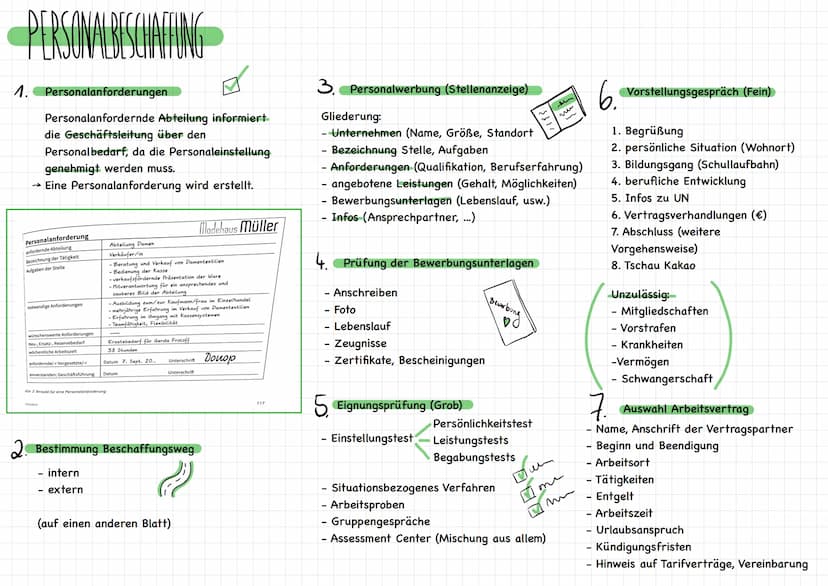 PERSONALBESCHAFFUNG
1. Personalanforderungen
Personalanfordernde Abteilung informiert
die Geschäftsleitung über den
Personalbedarf, da die Personaleinstellung
genehmigt werden muss.
→ Eine Personalanforderung wird erstellt.
Modehaus Müller
Personalanforderung
anfordernde Abteilung
Abteilung Damen
Bezeichnung der Tätigkeit
Verkäufer/in
Aufgaben der Stelle
- Beratung und Verkauf von Damentextilien
- Bedienung der Kasse
- verkaufsfördernde Präsentation der Ware
- Mitverantwortung für ein ansprechendes und
sauberes Bild der Abteilung
notwendige Anforderungen
- Ausbildung zum/zur Kaufmann/frau im Einzelhandel
- mehrjährige Erfahrung im Verkauf von Damentextilien
- Erfahrung im Umgang mit Kassensystemen
- Teamfähigkeit, Flexibilität
wünschenswerte Anforderungen
Neu-, Ersatz-, Reservebedarf
Ersatzbedarf für Gerda
wöchentliche Arbeitszeit
38 Stunden
anfordernde/-r Vorgesetzte/-r
Datum 7. Sept. 20..
Unterschrift Donop
einverstanden: Geschäftsführung
Datum
Unterschrift
2. Bestimmung Beschaffungsweg
- intern
- extern
(auf einen anderen Blatt)
3. Personalwerbung (Stellenanzeige)
Gliederung:
- Unternehmen (Name, Größe, Standort
- Bezeichnung Stelle, Aufgaben
- Anforderungen (Qualifikation, Berufserfahrung)
- angebotene Leistungen (Gehalt, Möglichkeiten)
- Bewerbungsunterlagen (Lebenslauf, usw.)
- Infos (Ansprechpartner, ...)
4. Prüfung der Bewerbungsunterlagen
- Anschreiben
- Foto
- Lebenslauf
- Zeugnisse
- Zertifikate, Bescheinigungen
Bewerbung
5. Eignungsprüfung (Grob)
- Einstellungstest
Persönlichkeitstest
Leistungstests
Begabungstests
- Situationsbezogenes Verfahren
- Arbeitsproben
- Gruppengespräche
- Assessment Center (Mischung aus allem)
6. Vorstellungsgespräch (Fein)
1. Begrüßung
2. persönliche Situation (Wohnort)
3. Bildungsgang (Schullaufbahn)
4. berufliche Entwicklung
5. Infos zu UN
6. Vertragsverhandlungen (€)
7. Abschluss (weitere
Vorgehensweise)
8. Tschau Kakao
Unzulässig:
- Mitgliedschaften
- Vorstrafen
- Krankheiten
-Vermögen
- Schwangerschaft
7. Auswahl Arbeitsvertrag
- Name, Anschrift der Vertragspartner
- Beginn und Beendigung
- Arbeitsort
- Tätigkeiten
- Entgelt
- Arbeitszeit
- Urlaubsanspruch
- Kündigungsfristen
- Hinweis auf Tarifverträge, Vereinbarung